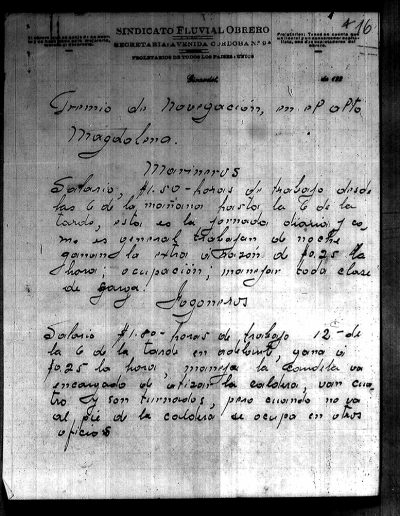 # 16
SINDICATO FLUVIAL OBRERO
SECRETARIA: AVENIDA CORDOBA Nº 9ª
PROLETARIOS DE TODOS LOS PAISES: UNIOS
Girardot, de 193
Gremio de Navegacion, en el alto
Magdalena.
Marineros
Salario, $1.50 - horas de trabajo desde
las 6 de la mañana hasta la 6 de la
tarde, esta es la jornada diaria y co-
mo es general trabajan de noche
ganan la extra a razón de $0.25 la
hora; ocupación; manejar toda clase
de carga.
Fogoneros
Salario $1.80 - horas de trabajo 12 - de
la 6 de la tarde en adelante, gana a
$0.25 la hora, maneja la candela va
encargado de atizar la caldera, van cua-
tro y son turnados, pero cuando no va
al pié de la caldera se ocupa en otros
oficios